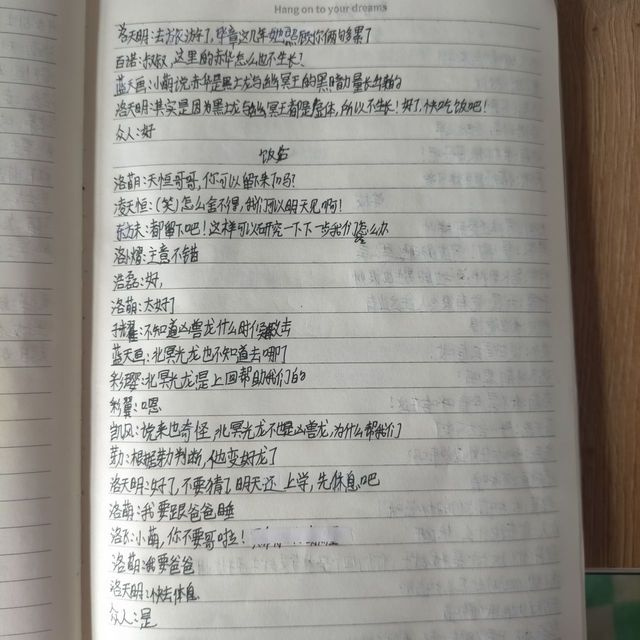 Hang on to your dreams
洛天明:去旅游了,毕竟这几年她照顾你俩够累了
百诺:叔叔,这里的赤华怎么也不生长?
蓝天画:小萌说赤华是黑土龙与幽冥王的黑暗力量长出来的
洛天明:其实是因为黑土龙与幽冥王都是虚体,所以不生长!好了,快吃饭吧!
众人:好
饭后
洛萌:天恒哥哥,你可以留下来了吗?
凌天恒:(笑)怎么舍不得,我们可以明天见啊!
东方末:都留下吧!这样可以研究一下下一步我们怎么办
洛小熠:主意不错
浩磊:好,
洛萌:太好了
子耀:不知道凶兽龙什么时候来
蓝天画:北冥光龙也不知道去哪了
彩璎:北冥光龙是上回帮助我们的
翼:嗯
凯风:说来也奇怪,北冥光龙不也是凶兽龙,为什么帮我们
勒:根据勒判断,他变好龙了
洛天明:好了,不要猜了,明天还上学,先休息吧
洛萌:我要跟爸爸睡
洛:小萌,你不要哥啦!
洛萌:我要爸爸
洛天明:快去休息
众人:是